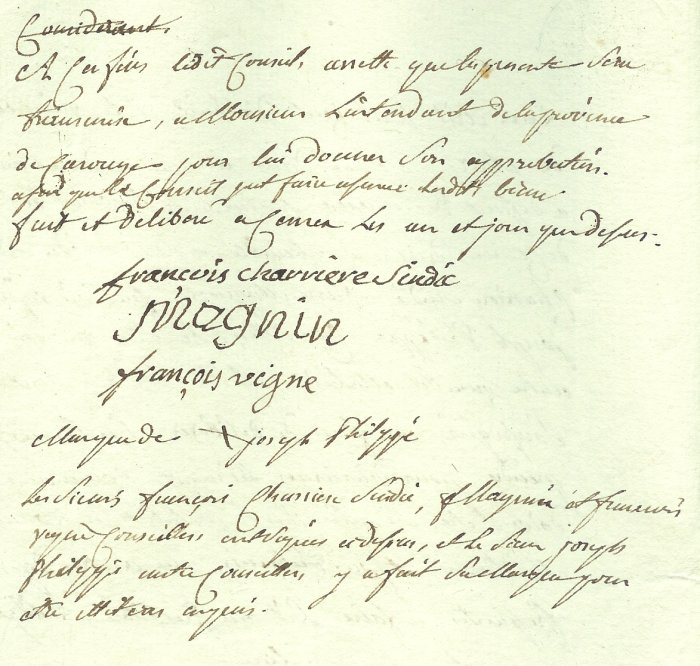 Considerant
A Ces fins ledit Conseil arrette que la presente Sera
humisse, a Monsieur L'intendant de la province
de Carouge pour lui donner Son approbation.
afin que le Conseil put faire affermé lesdits biens
fait et Deliberé a Cernex Les an et jour que dessus.
françois charriere Sindic
Magnin
françois vigne
Marque de + joseph Philippe
les Sieurs françois Charriere Sindic, f Magnin et francois
vigne Conseillers ont Signés cidessus, et le Sieur joseph
Philippe autre Conseiller y a fait Sa Marque pour
etre illiteré